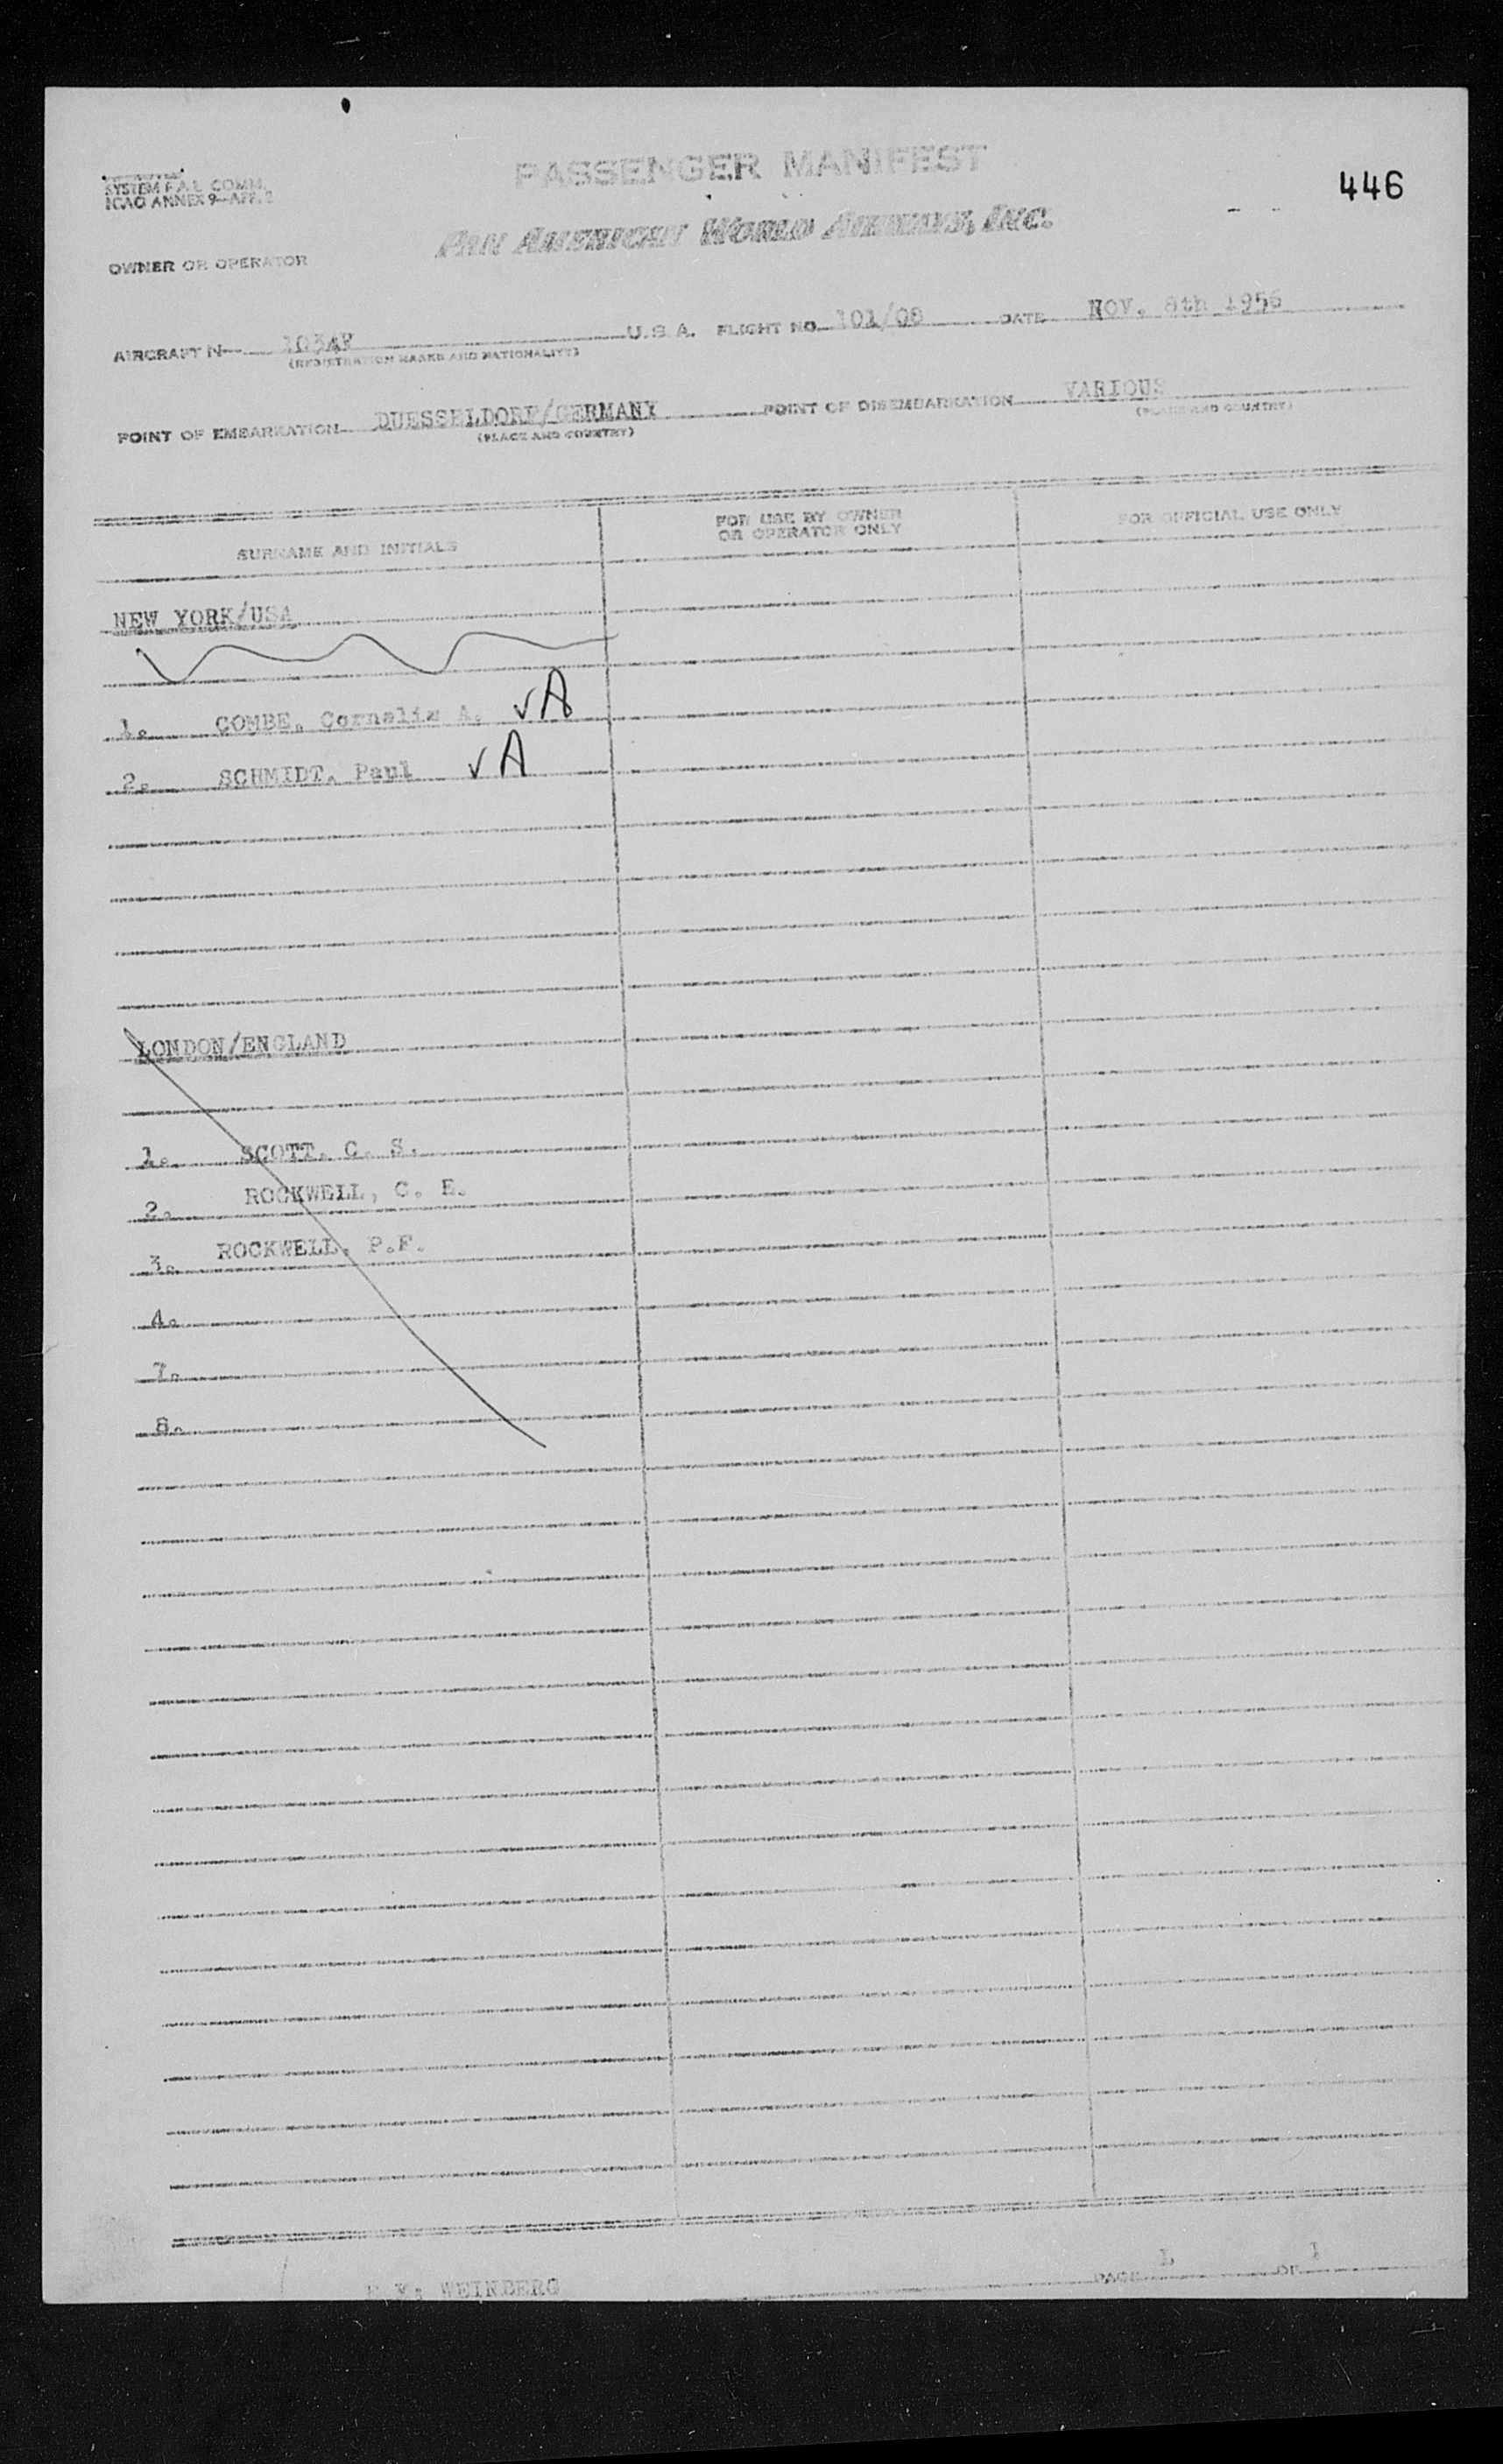 PASSENGER MANIFEST
446
SYSTEM F.A.L. COMM.
ICAO ANNEX 9—APP. 2
PAN AMERICAN WORLD AIRWAYS, INC.
OWNER OR OPERATOR
AIRCRAFT N— U.S.A. FLIGHT NO. 101/08 DATE NOV. 8th 1956
(REGISTRATION MARKS AND NATIONALITY)
POINT OF EMBARKATION DUESSELDORF/GERMANY POINT OF DISEMBARKATION VARIOUS
(PLACE AND COUNTRY) (PLACE AND COUNTRY)
SURNAME AND INITIALS FOR USE BY OWNER OR OPERATOR ONLY FOR OFFICIAL USE ONLY
NEW YORK/USA
1. COMBE, Cornelia A. √A
2. SCHMIDT, Paul √A
LONDON/ENGLAND
1. SCOTT, C. S.
2. ROCKWELL, C. E.
3. ROCKWELL, P.F.
4.
7.
8.
WEINBERG
PAGE 1 OF 1